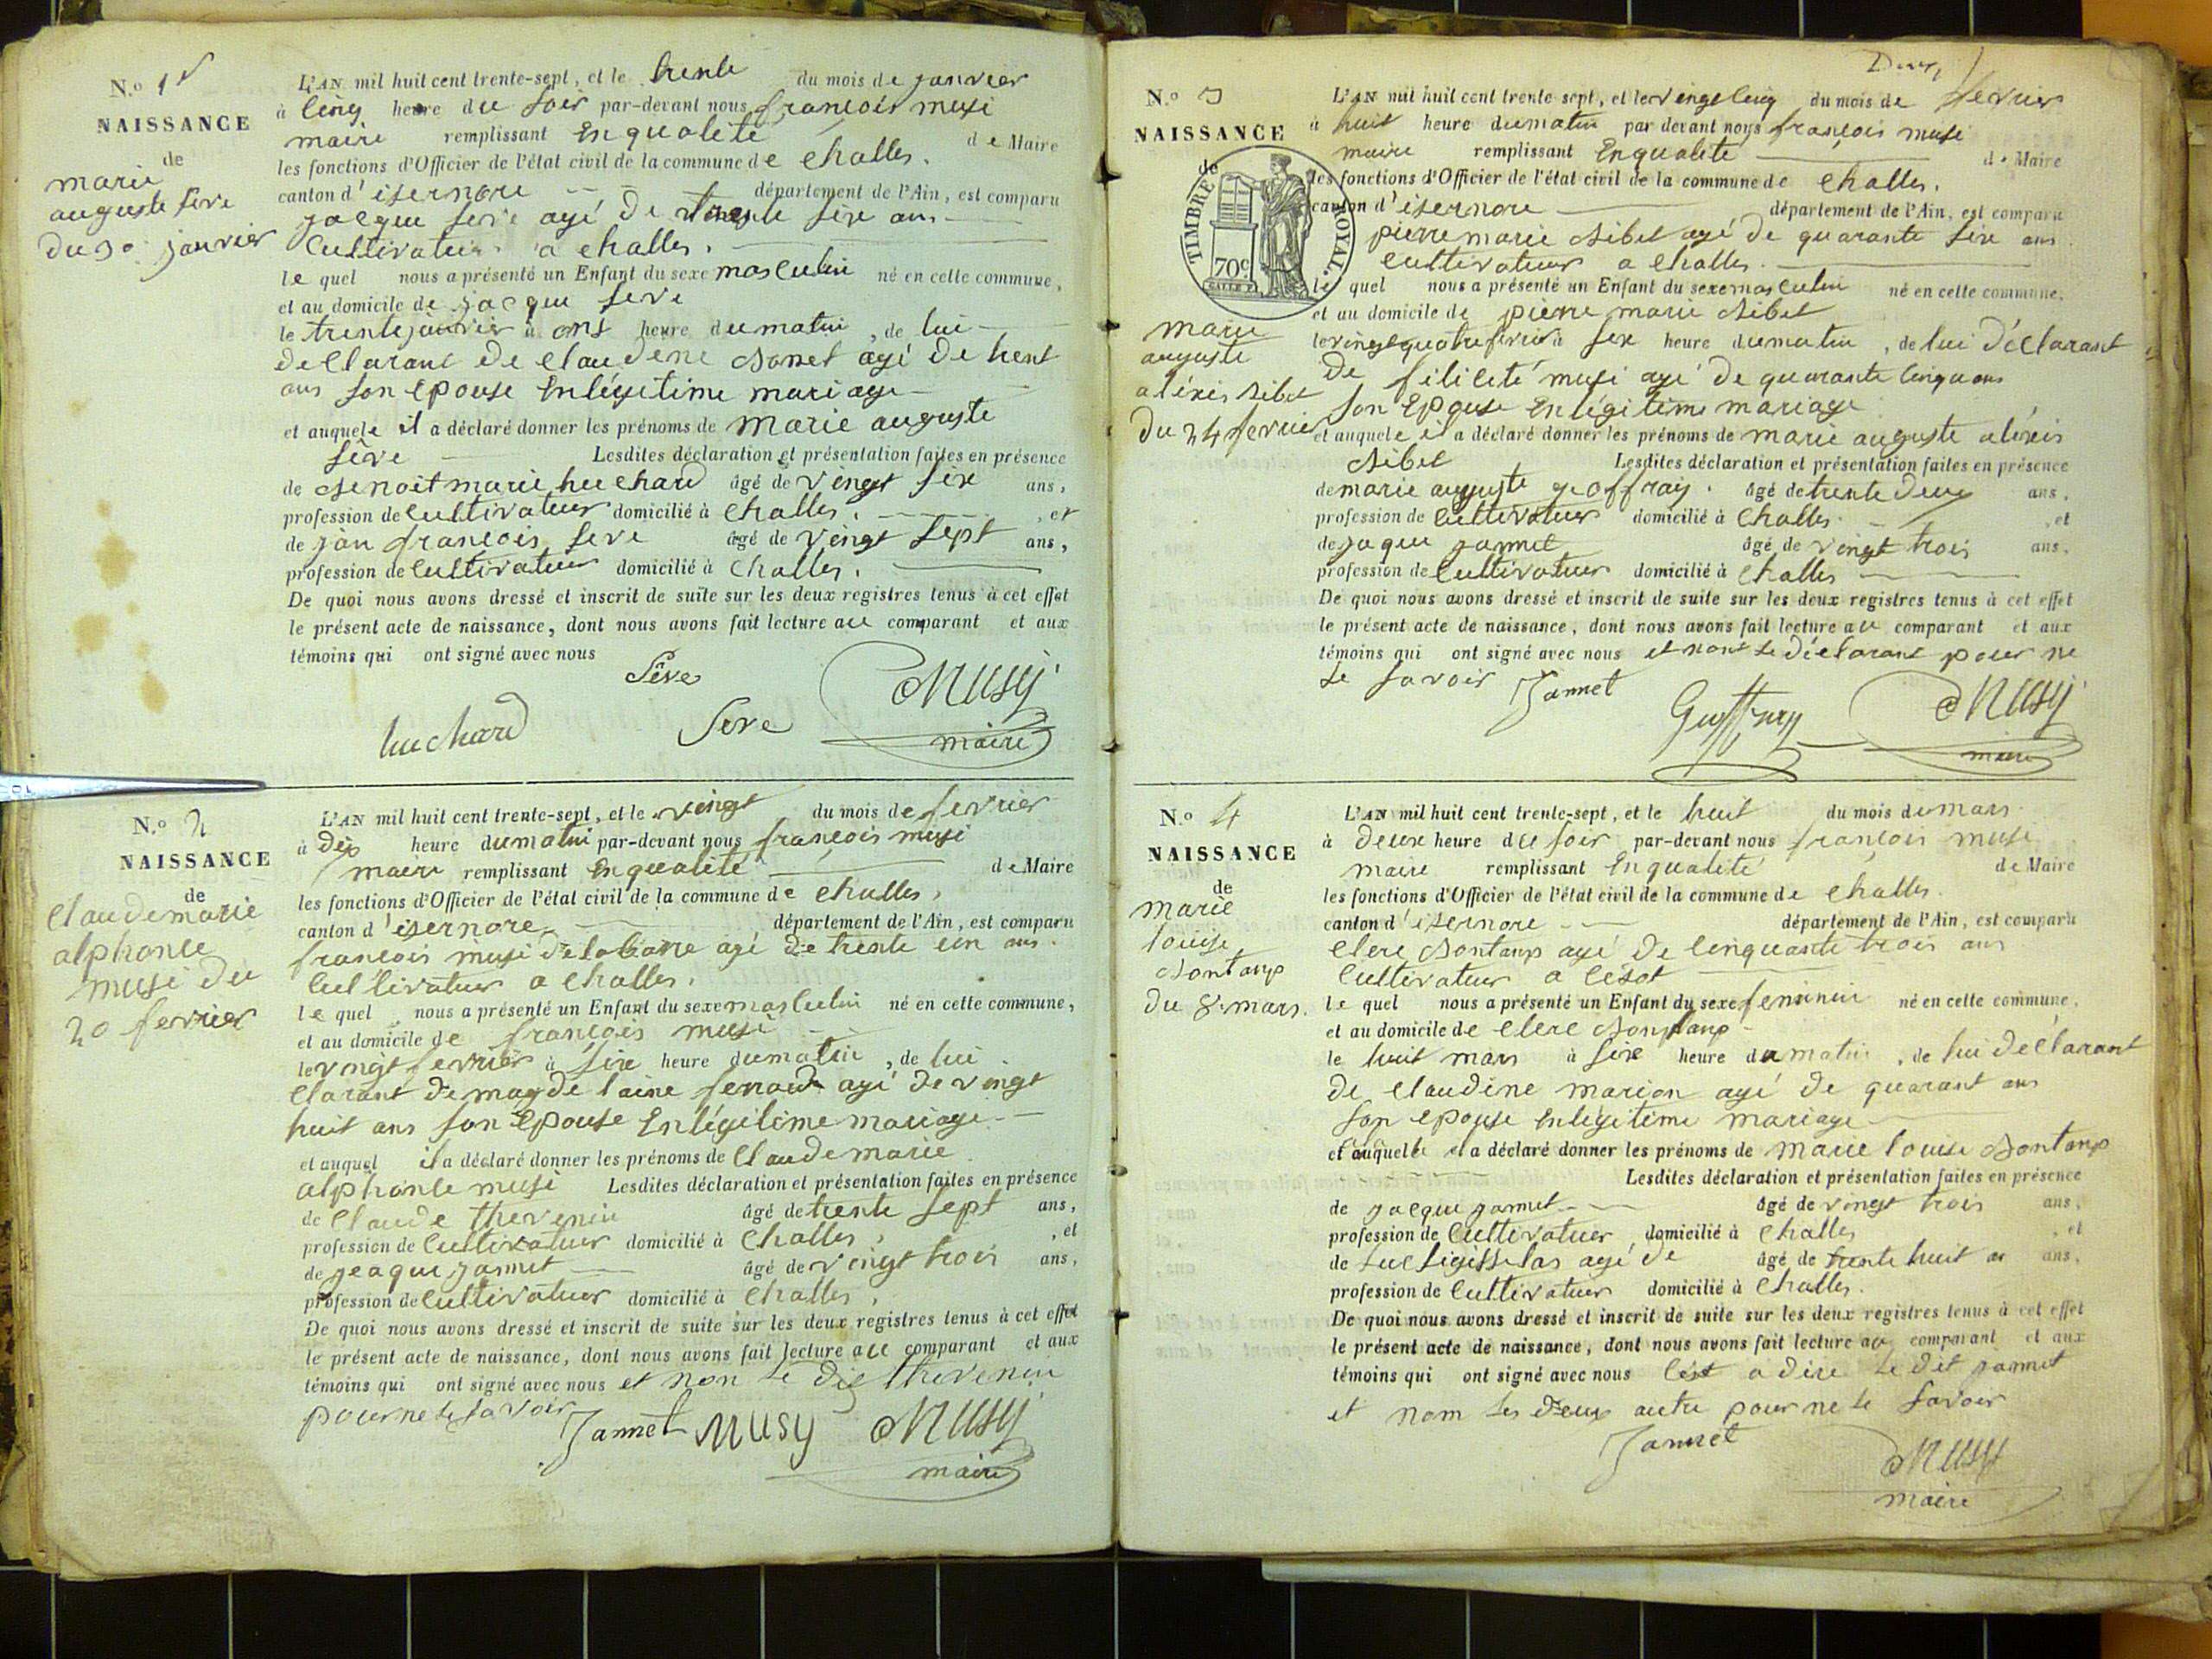 N.o 1r
NAISSANCE
de
marie
auguste seve
du 30 janvier
L'AN mil huit cent trente-sept, et le trente du mois de janvier
à cinq heure du soir par-devant nous françois musi
maire remplissant en qualité de Maire
les fonctions d'Officier de l'état civil de la commune de challes.
canton d'isernore département de l'Ain, est comparu
jacque seve agé de trente six ans
cultivateur a challes.
le quel nous a présenté un Enfant du sexe masculin né en cette commune,
et au domicile de jacque seve
le trente janvier à ons heure du matin, de lui
declarant de claudene bonet agé de trent
ans son epouse en légitime mariage
et auquele il a déclaré donner les prénoms de marie auguste
sêve Lesdites déclaration et présentation faites en présence
de benoit marie huchard âgé de vingt six ans,
profession de cultivateur domicilié à challes, et
de jan françois seve âgé de vingt sept ans,
profession de cultivateur domicilié à challes.
De quoi nous avons dressé et inscrit de suite sur les deux registres tenus à cet effet
le présent acte de naissance, dont nous avons fait lecture au comparant et aux
témoins qui ont signé avec nous
Sêve
huchard Seve Musy
maire
N.o 2
NAISSANCE
de
claude marie
alphonce
musi du
20 fevrier
L'AN mil huit cent trente-sept, et le vingt du mois de fevrier
à dix heure du matin par-devant nous françois musi
maire remplissant en qualité de Maire
les fonctions d'Officier de l'état civil de la commune de challes,
canton d'isernore département de l'Ain, est comparu
francois musi agé de trente un ans.
cultivateur a challes.
le quel nous a présenté un Enfant du sexe masculin né en cette commune,
et au domicile de françois musi
le vingt fevrier à six heure du matin, de lui
clarant de magdelaine ferroud agé de vingt
huit ans son epouse en légitime mariage
et auquel il a déclaré donner les prénoms de claude marie
alphonce musi Lesdites déclaration et présentation faites en présence
de claude thevenin âgé de trente sept ans,
profession de cultivateur domicilié à challes, et
de jeaque jannet âgé de vingt trois ans,
profession de cultivateur domicilié à challes.
De quoi nous avons dressé et inscrit de suite sur les deux registres tenus à cet effet
le présent acte de naissance, dont nous avons fait lecture au comparant et aux
témoins qui ont signé avec nous et non le dis thevenin
pour ne le savoir
Jannet Musy Musy
maire
Deux
N.o 3
NAISSANCE
de
TIMBRE ROYAL.
70c
marie
auguste
aléxis sibet
du 24 fevrier
L'AN mil huit cent trente-sept, et le vengt cinq du mois de fevrier
à huit heure du matin par-devant nous françois musi
maire remplissant en qualité de Maire
les fonctions d'Officier de l'état civil de la commune de challes.
canton d'isernore département de l'Ain, est comparu
pierre marie sibet agé de quarante six ans
cultivateur a challes.
le quel nous a présenté un Enfant du sexe masculin né en cette commune,
et au domicile de pierre marie sibet
le vingt quatre fevrier à six heure du matin, de lui déclarant
de félicité musi agé de quarante cinq ans
son epouse en légitime mariage
et auquele il a déclaré donner les prénoms de marie auguste aléxis
sibet Lesdites déclaration et présentation faites en présence
de marie auguste geoffray. âgé de trente deux ans,
profession de cultivateur domicilié à challes, et
de jaque jannet âgé de vingt trois ans,
profession de cultivateur domicilié à challes
De quoi nous avons dressé et inscrit de suite sur les deux registres tenus à cet effet
le présent acte de naissance, dont nous avons fait lecture au comparant et aux
témoins qui ont signé avec nous et nont le déclarant pour ne
le savoir Jannet Geoffray Musy
maire
N.o 4
NAISSANCE
de
marie
louise
bontamp
du 8 mars.
L'AN mil huit cent trente-sept, et le huit du mois du mars
à deux heure du soir par-devant nous françois musi
maire remplissant en qualité de Maire
les fonctions d'Officier de l'état civil de la commune de challes.
canton d'isernore département de l'Ain, est comparu
clere bontamp agé de cinquante trois ans
cultivateur a
le quel nous a présenté un Enfant du sexe feminin né en cette commune,
et au domicile de clere bontamp
le huit mars à six heure du matin, de lui déclarant
de claudine marion agé de quarant ans
son epouse en légitime mariage
et auquelle il a déclaré donner les prénoms de marie louise bontamp
Lesdites déclaration et présentation faites en présence
de jacque jannet âgé de vingt trois ans,
profession de cultivateur domicilié à challes, et
de luc agé de âgé de trente huit ans,
profession de cultivateur domicilié à challes.
De quoi nous avons dressé et inscrit de suite sur les deux registres tenus à cet effet
le présent acte de naissance, dont nous avons fait lecture au comparant et aux
témoins qui ont signé avec nous cést a dire le dit jannet
et nom les deux autre pour ne le savoir
Jannet Musy
maire